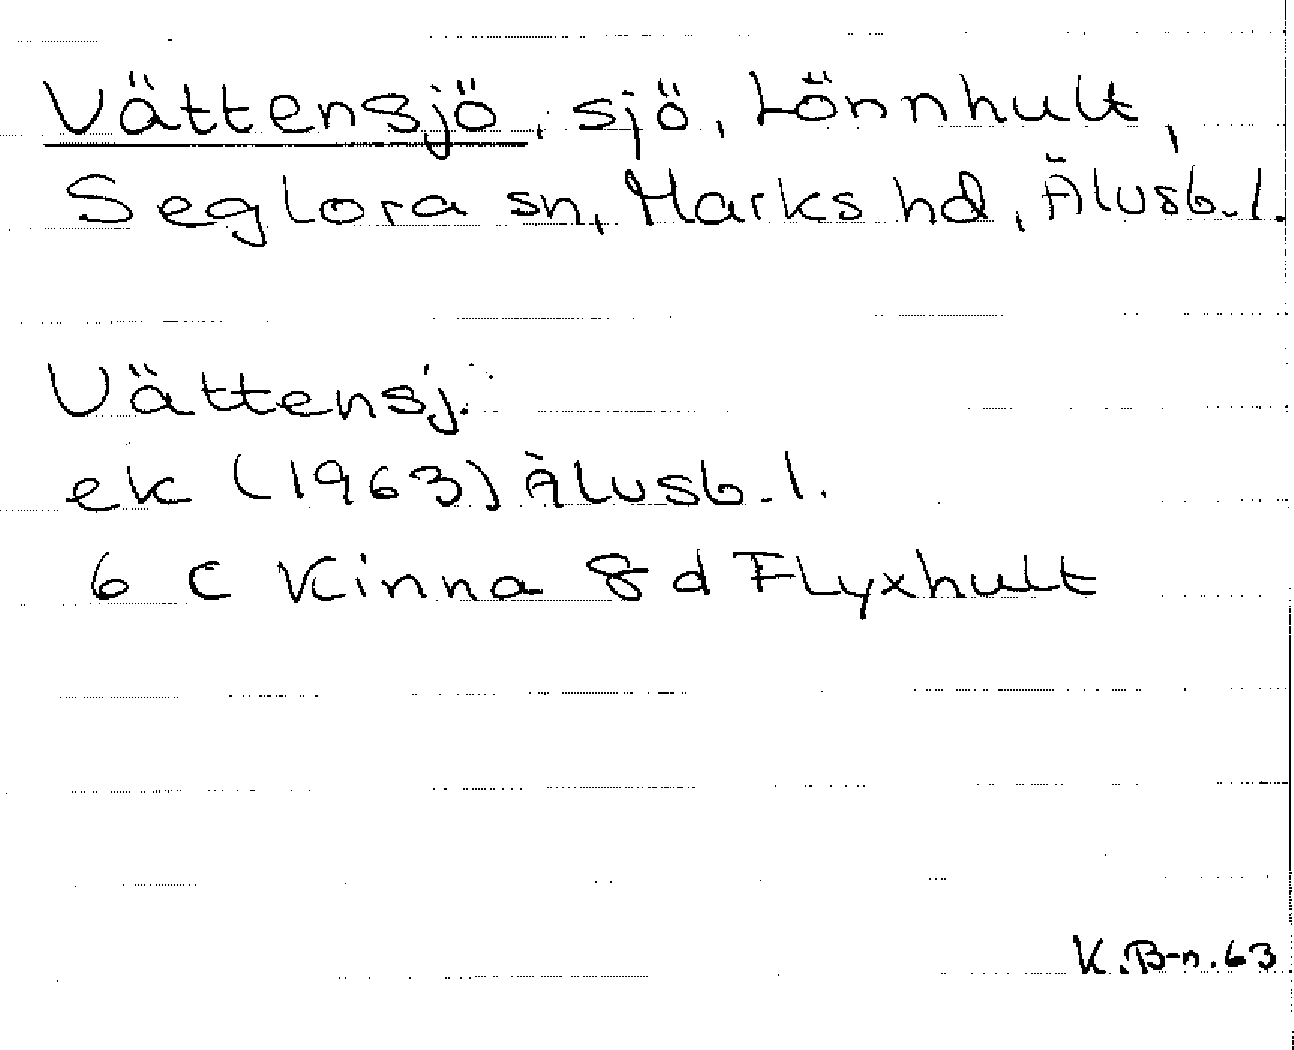 Vättensjö, sjö, Lönnhult,
Seglora sn, Marks hd, Älvsb. l.
Vättensj.
ek (1963) Älvsb. l.
6 C Kinna 8 d Flyxhult
K.B-n.63